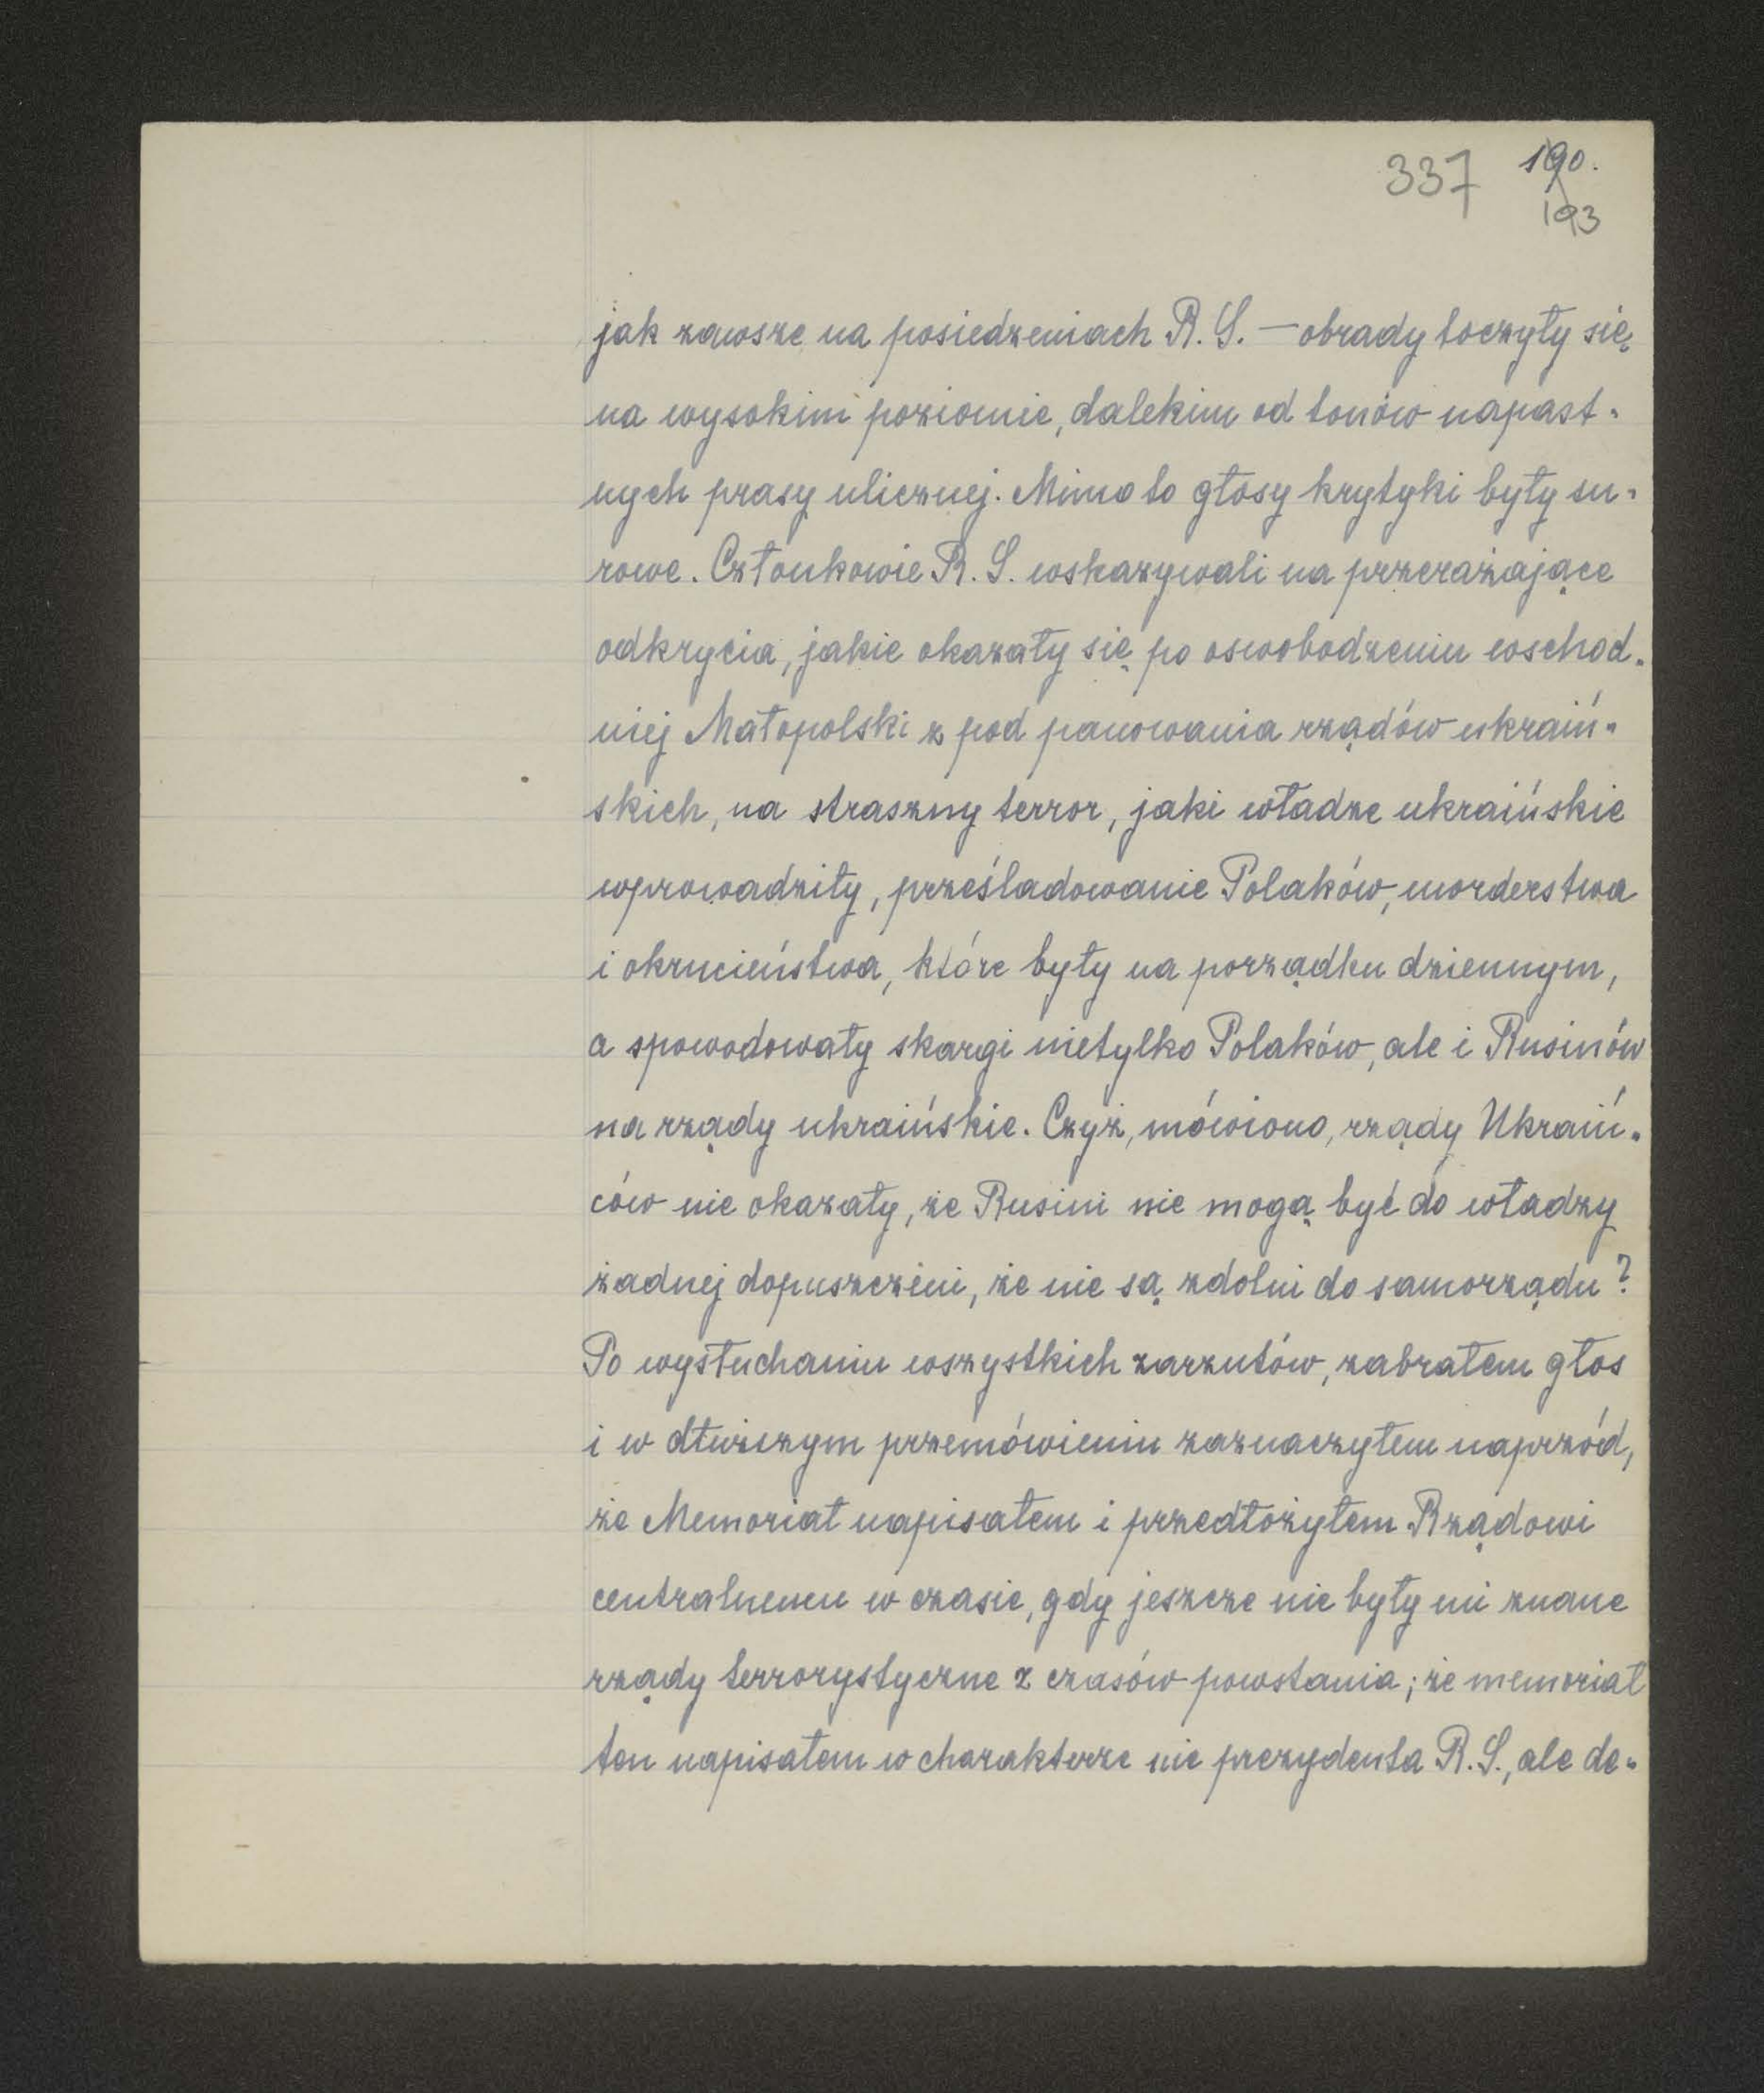 337 190.
193
jak zawsze na posiedzeniach R. S. — obrady toczyły się
na wysokim poziomie, dalekim od tonów napast-
nych prasy ulicznej. Mimo to głosy krytyki były su-
rowe. Członkowie R. S. wskazywali na przerażające
odkrycia, jakie okazały się po oswobodzeniu wschod-
niej Małopolski z pod panowania rządów ukraiń-
skich, na straszny terror, jaki władze ukraińskie
wprowadziły, prześladowanie Polaków, morderstwa
i okrucieństwa, które były na porządku dziennym,
a spowodowały skargi nietylko Polaków, ale i Rusinów
na rządy ukraińskie. Czyż, mówiono, rządy Ukraiń-
ców nie okazały, że Rusini nie mogą być do władzy
żadnej dopuszczeni, że nie są zdolni do samorządu?
Po wysłuchaniu wszystkich zarzutów, zabrałem głos
i w dłuższym przemówieniu zaznaczyłem naprzód,
że Memoriał napisałem i przedłożyłem Rządowi
centralnemu w czasie, gdy jeszcze nie były mi znane
rządy terrorystyczne z czasów powstania; że memoriał
ten napisałem w charakterze nie prezydenta R. S., ale de-